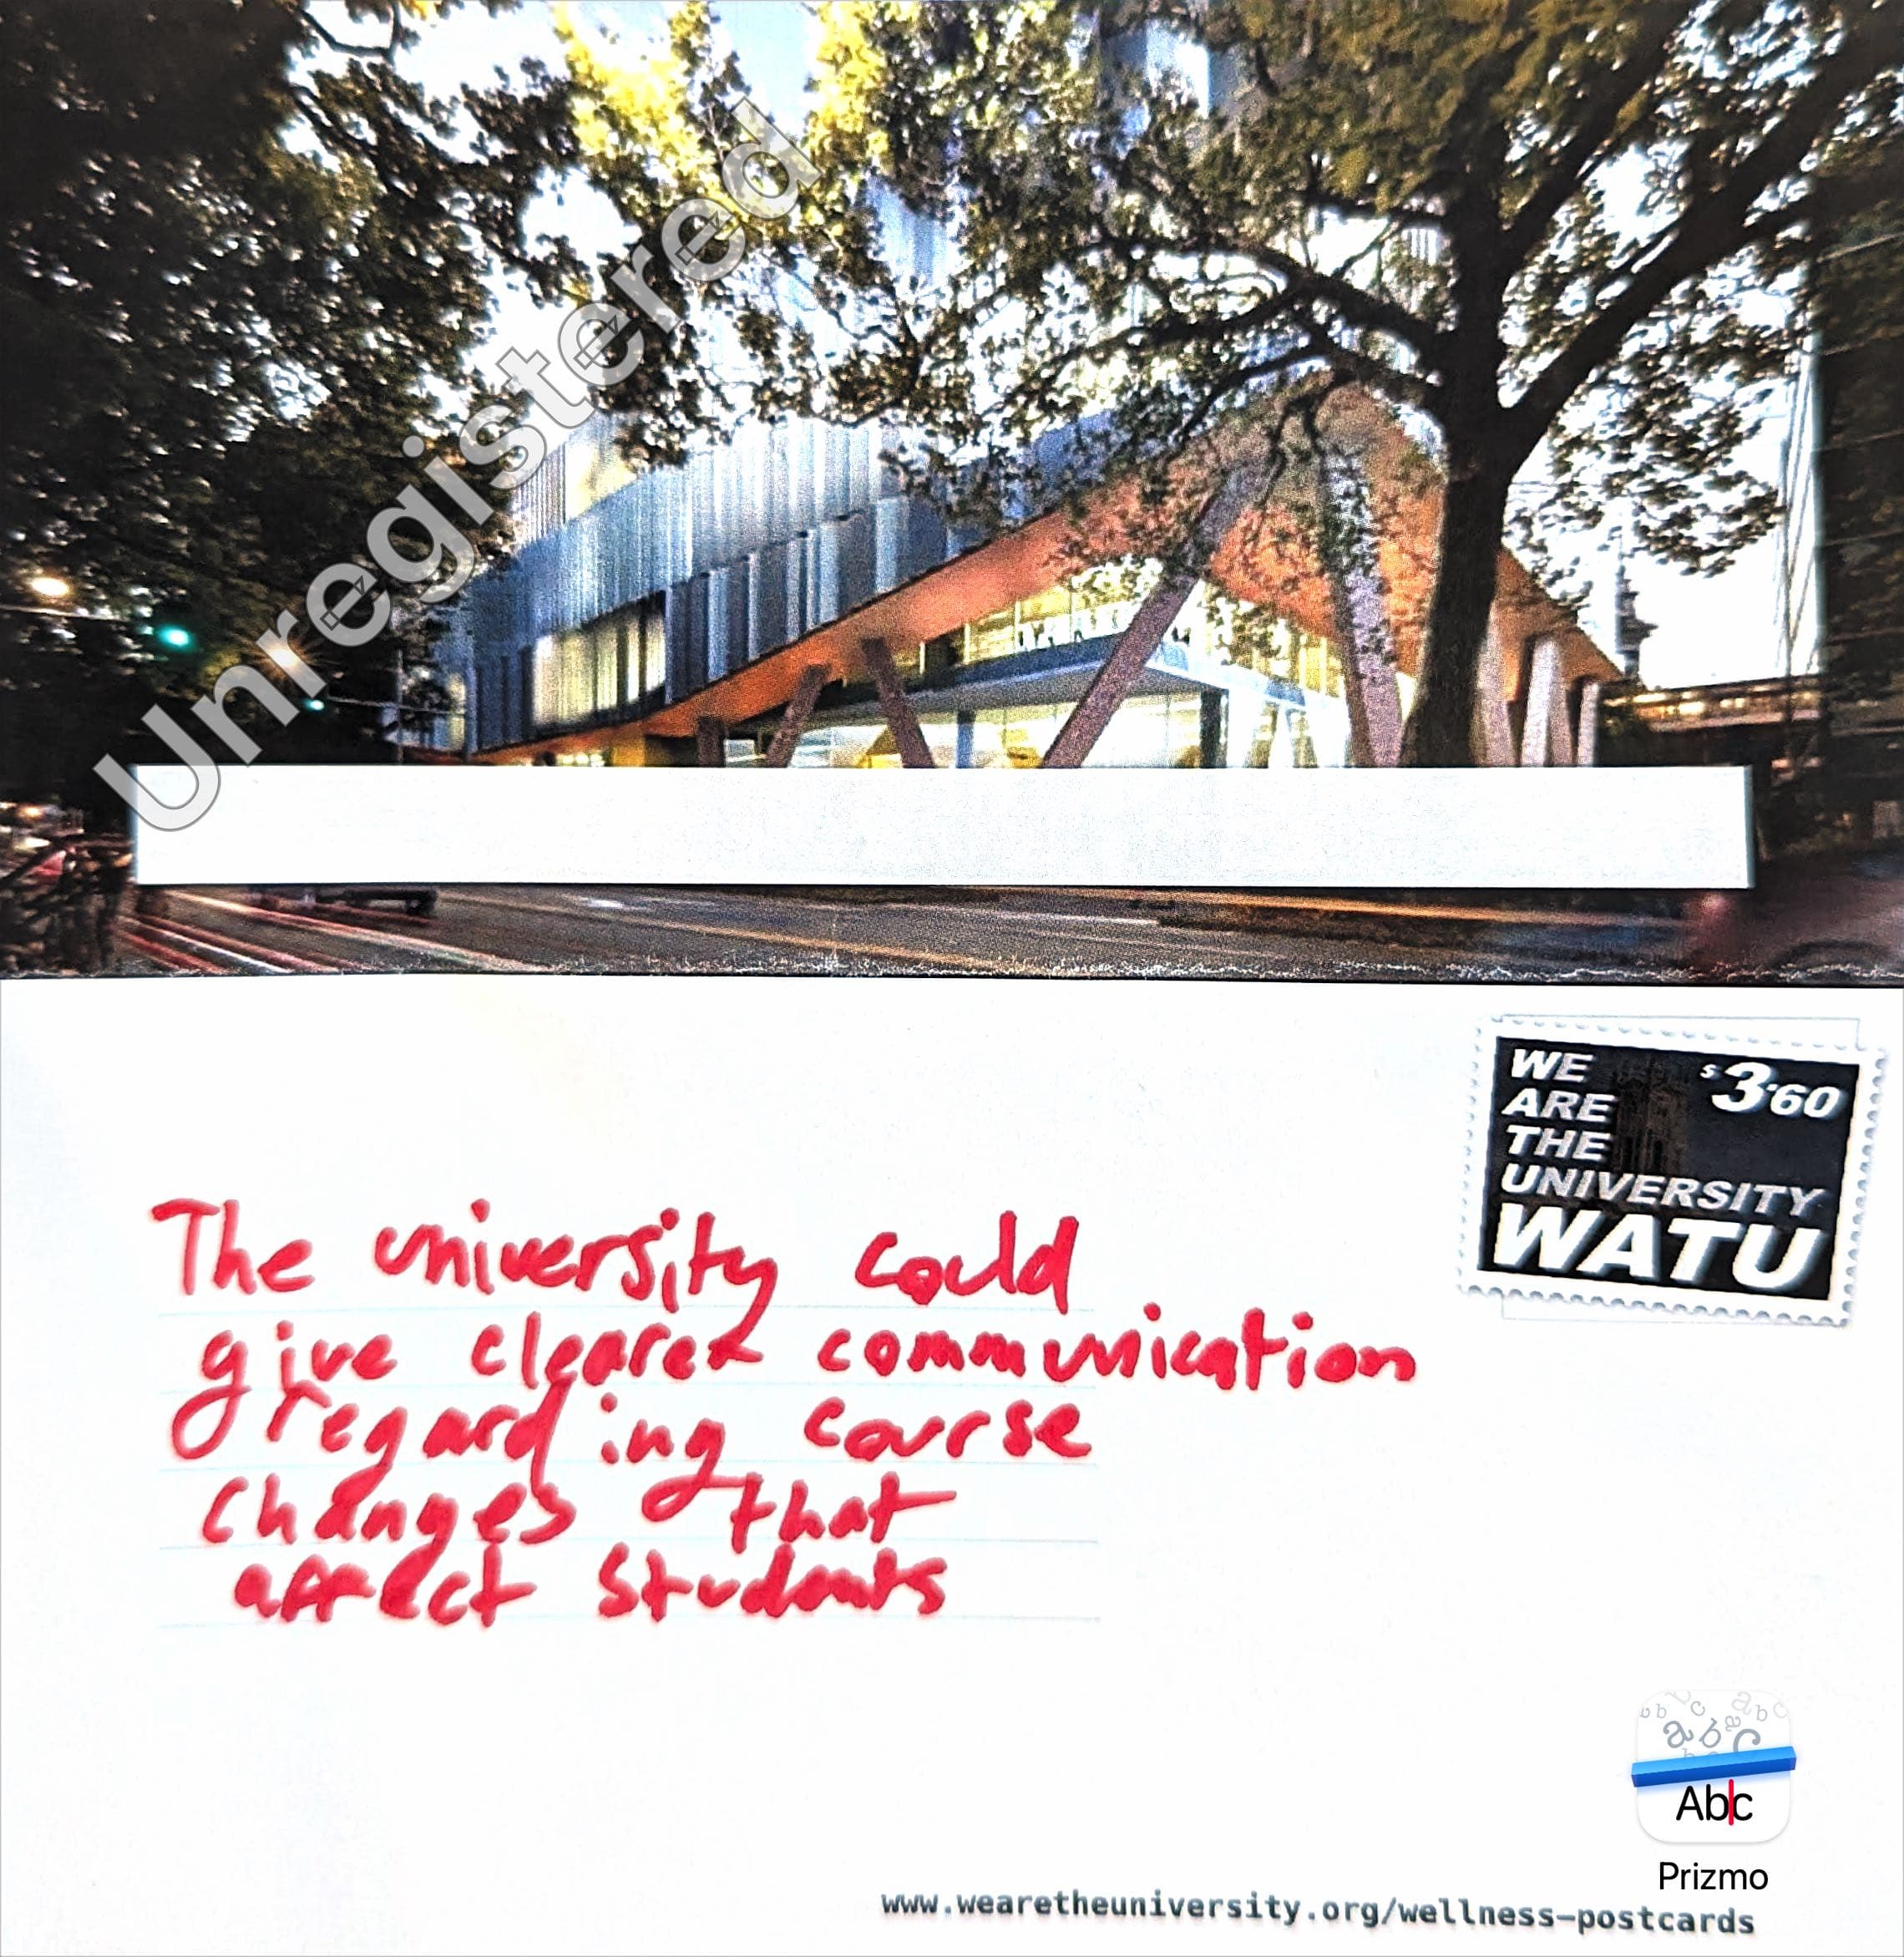 Unregistered
WE
ARE
THE
UNIVERSITY
WATU
$3.60
The university could
give clearer communication
regarding course
changes that
affect students
Abc
Prizmo
www.wearetheuniversity.org/wellness-postcards